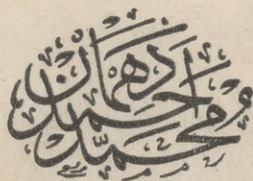 محمد احمد دهمان